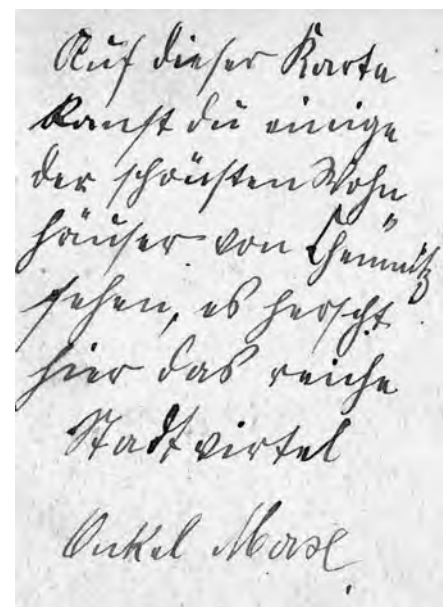 Auf dieser Karte
kanst du einige
der schönsten Wohn
häuser von Chemnitz
sehen, es herscht
hier das reiche
Stadtvirtel
Onkel Max